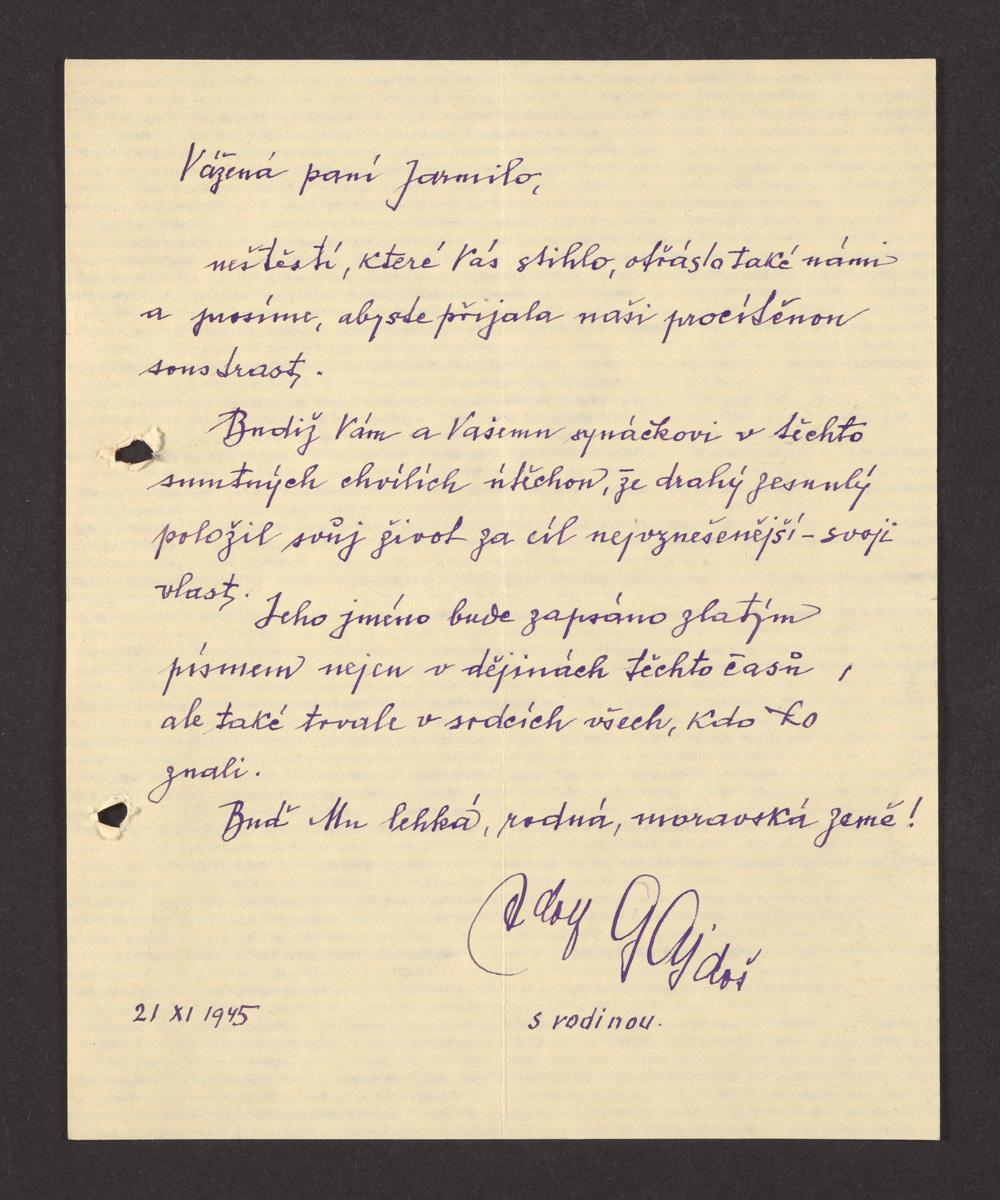 Vážená paní Jarmilo,
neštěstí, které Vás stihlo, otřáslo také námi
a prosíme, abyste přijala naši procítěnou
soustrast.
Budiž Vám a Vašemu synáčkovi v těchto
smutných chvílích útěchou, že drahý zesnulý
položil svůj život za cíl nejvznešenější - svoji
vlast.
Jeho jméno bude zapsáno zlatým
písmem nejen v dějinách těchto časů,
ale také trvale v srdcích všech, kdo ho
znali.
Buď Mu lehká, rodná, moravská země!
Gajdoš
21 XI 1945
s rodinou.